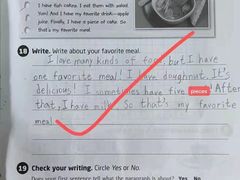 I have fish cakes. I eat them with salad.
Yum! And I have my favorite drink—apple
juice. Finally, I have a piece of cake. So
that's my favorite meal!
18 Write. Write about your favorite meal.
I love many kinds of food, but I have
one favorite meal! I have doughnut. It's
delicious! I sometimes have five pieces! After
that, I have milk. So that's my favorite
meal.
19 Check your writing. Circle Yes or No.
Does your first sentence tell what the paragraph is about? Yes No